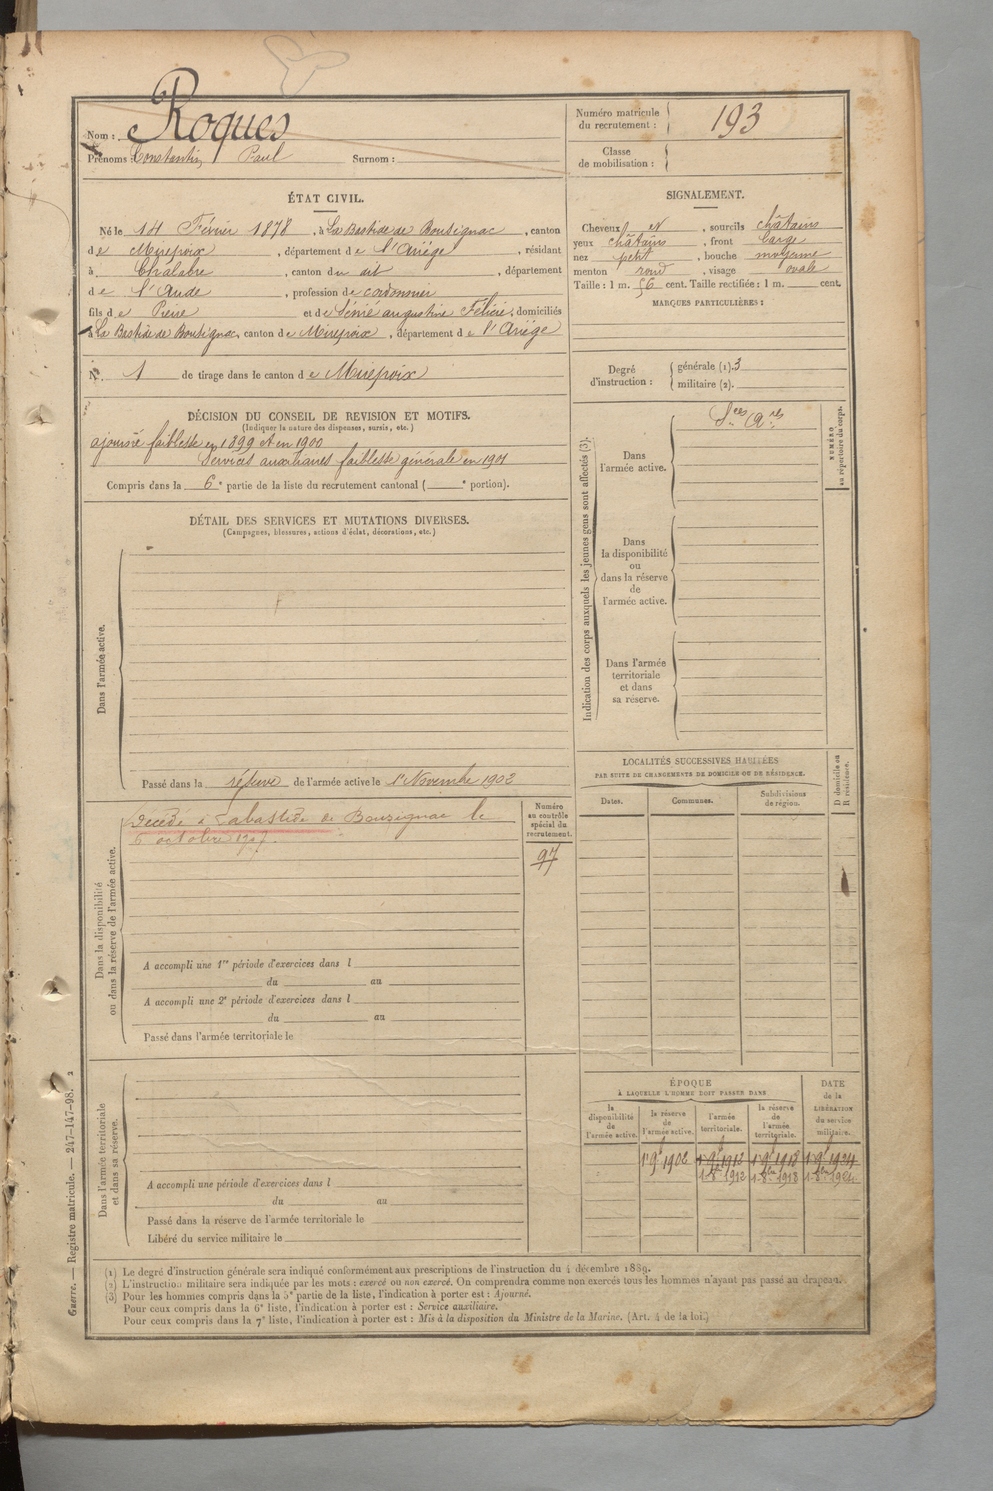 Nom : Roques
Prénoms : Constantin Paul Surnom :
Numéro matricule du recrutement : 193
Classe de mobilisation :
ÉTAT CIVIL.
Né le 14 Février 1878, à La Bastide de Bousignac, canton
de Mirepoix, département de l'Ariège, résidant
à Chalabre, canton du dit, département
de l'Aude, profession de cordonnier
fils de Pierre et de Sénié augustine Félicie, domiciliés
à La Bastide de Bousignac, canton de Mirepoix, département de l'Ariège
N° 1 de tirage dans le canton de Mirepoix
SIGNALEMENT.
Cheveux et , sourcils châtains
yeux châtains, front large
nez petit, bouche moyenne
menton rond, visage ovale
Taille : 1 m. 56 cent. Taille rectifiée : 1 m. cent.
MARQUES PARTICULIÈRES :
Degré d'instruction : générale (1). 3
militaire (2).
DÉCISION DU CONSEIL DE REVISION ET MOTIFS.
(Indiquer la nature des dispenses, sursis, etc.)
ajourné faiblesse en 1899 et en 1900
Services auxiliaires faiblesse générale en 1901
Compris dans la 6e partie de la liste du recrutement cantonal ( e portion).
DÉTAIL DES SERVICES ET MUTATIONS DIVERSES.
(Campagnes, blessures, actions d'éclat, décorations, etc.)
Dans l'armée active.
Passé dans la réserve de l'armée active le 1er Novembre 1902
Indication des corps auxquels les jeunes gens sont affectés (3).
NUMÉRO au répertoire du corps.
Dans l'armée active.
Sces Ares
Dans la disponibilité ou dans la réserve de l'armée active.
Dans l'armée territoriale et dans sa réserve.
LOCALITÉS SUCCESSIVES HABITÉES
PAR SUITE DE CHANGEMENTS DE DOMICILE OU DE RÉSIDENCE.
Dates. Communes. Subdivisions de région. D domicile ou R résidence.
Dans la disponibilité ou dans la réserve de l'armée active.
Numéro au contrôle spécial du recrutement.
97
Décédé à Labastide de Bousignac le
6 octobre 1907.
A accompli une 1re période d'exercices dans l
du au
A accompli une 2e période d'exercices dans l
du au
Passé dans l'armée territoriale le
Dans l'armée territoriale et dans sa réserve.
A accompli une période d'exercices dans l
du au
Passé dans la réserve de l'armée territoriale le
Libéré du service militaire le
ÉPOQUE
À LAQUELLE L'HOMME DOIT PASSER DANS
DATE de la LIBÉRATION du service militaire.
la disponibilité de l'armée active. la réserve de l'armée active. l'armée territoriale. la réserve de l'armée territoriale.
1er 9bre 1902 1er 9bre 1912 1er 9bre 1918 1er 9bre 1924
1 8bre 1912 1 8bre 1918 1 8bre 1924
(1) Le degré d'instruction générale sera indiqué conformément aux prescriptions de l'instruction du 4 décembre 1889.
(2) L'instruction militaire sera indiquée par les mots : exercé ou non exercé. On comprendra comme non exercés tous les hommes n'ayant pas passé au drapeau.
(3) Pour les hommes compris dans la 5e partie de la liste, l'indication à porter est : Ajourné.
Pour ceux compris dans la 6e liste, l'indication à porter est : Service auxiliaire.
Pour ceux compris dans la 7e liste, l'indication à porter est : Mis à la disposition du Ministre de la Marine. (Art. 4 de la loi.)
Guerre. — Registre matricule. — 247-147-98. 2